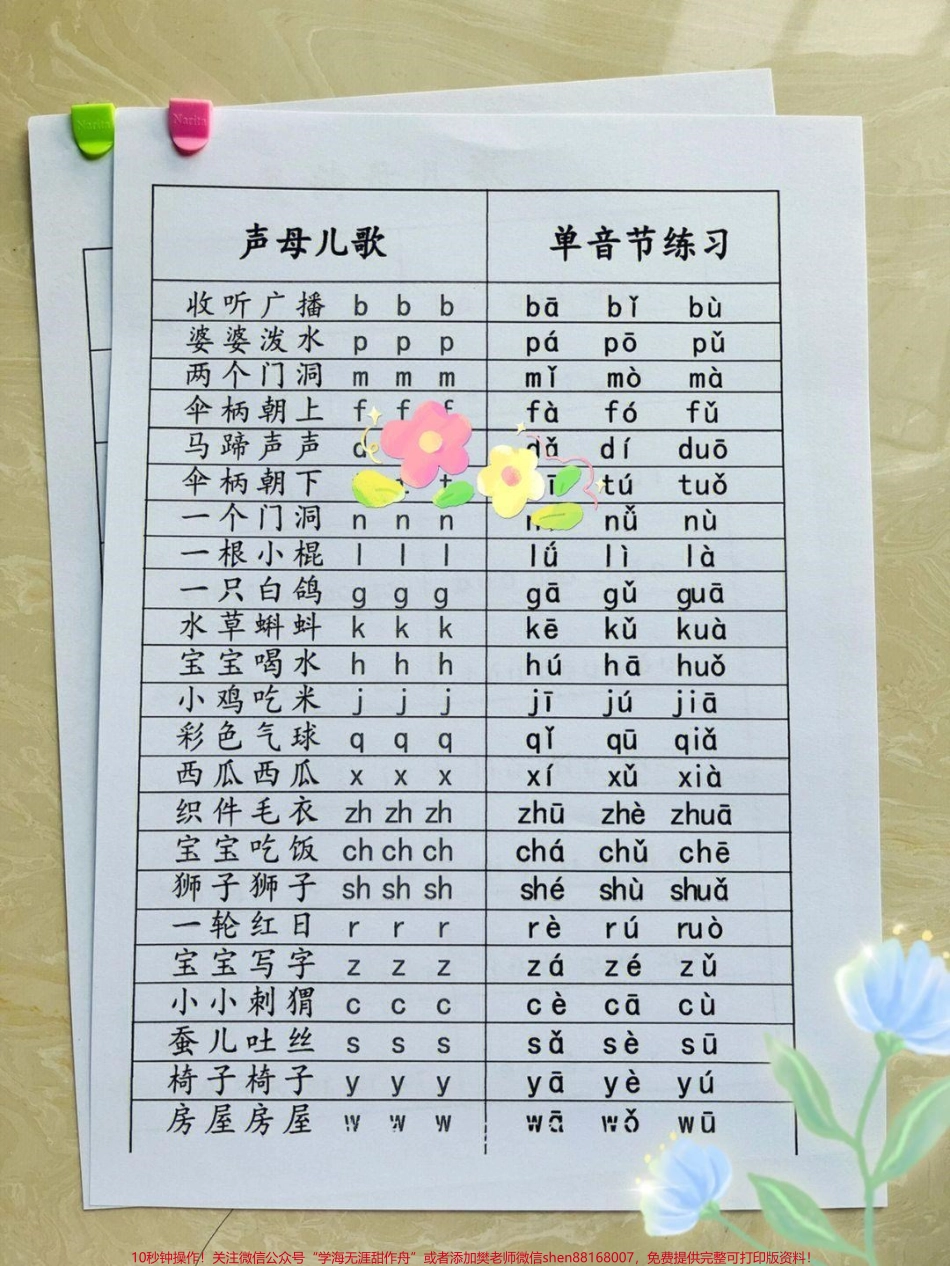 Narita Narita
声母儿歌 单音节练习
收听广播 b b b bā bǐ bù
婆婆泼水 p p p pá pō pǔ
两个门洞 m m m mǐ mò mà
伞柄朝上 f f f fà fó fǔ
马蹄声声 dí duō
伞柄朝下 t tú tuǒ
一个门洞 n n n nǚ nù
一根小棍 l l l lǘ lì là
一只白鸽 g g g gā gǔ guā
水草蝌蚪 k k k kē kǔ kuà
宝宝喝水 h h h hú hā huǒ
小鸡吃米 j j j jī jú jiā
彩色气球 q q q qǐ qū qiǎ
西瓜西瓜 x x x xí xǔ xià
织件毛衣 zh zh zh zhū zhè zhuā
宝宝吃饭 ch ch ch chá chǔ chē
狮子狮子 sh sh sh shé shù shuǎ
一轮红日 r r r rè rú ruò
宝宝写字 z z z zá zé zǔ
小小刺猬 c c c cè cā cù
蚕儿吐丝 s s s sǎ sè sū
椅子椅子 y y y yā yè yú
房屋房屋 w w w wā wǒ wū
10秒钟操作！关注微信公众号“学海无涯甜作舟”或者添加樊老师微信shen88168007，免费提供完整可打印版资料！